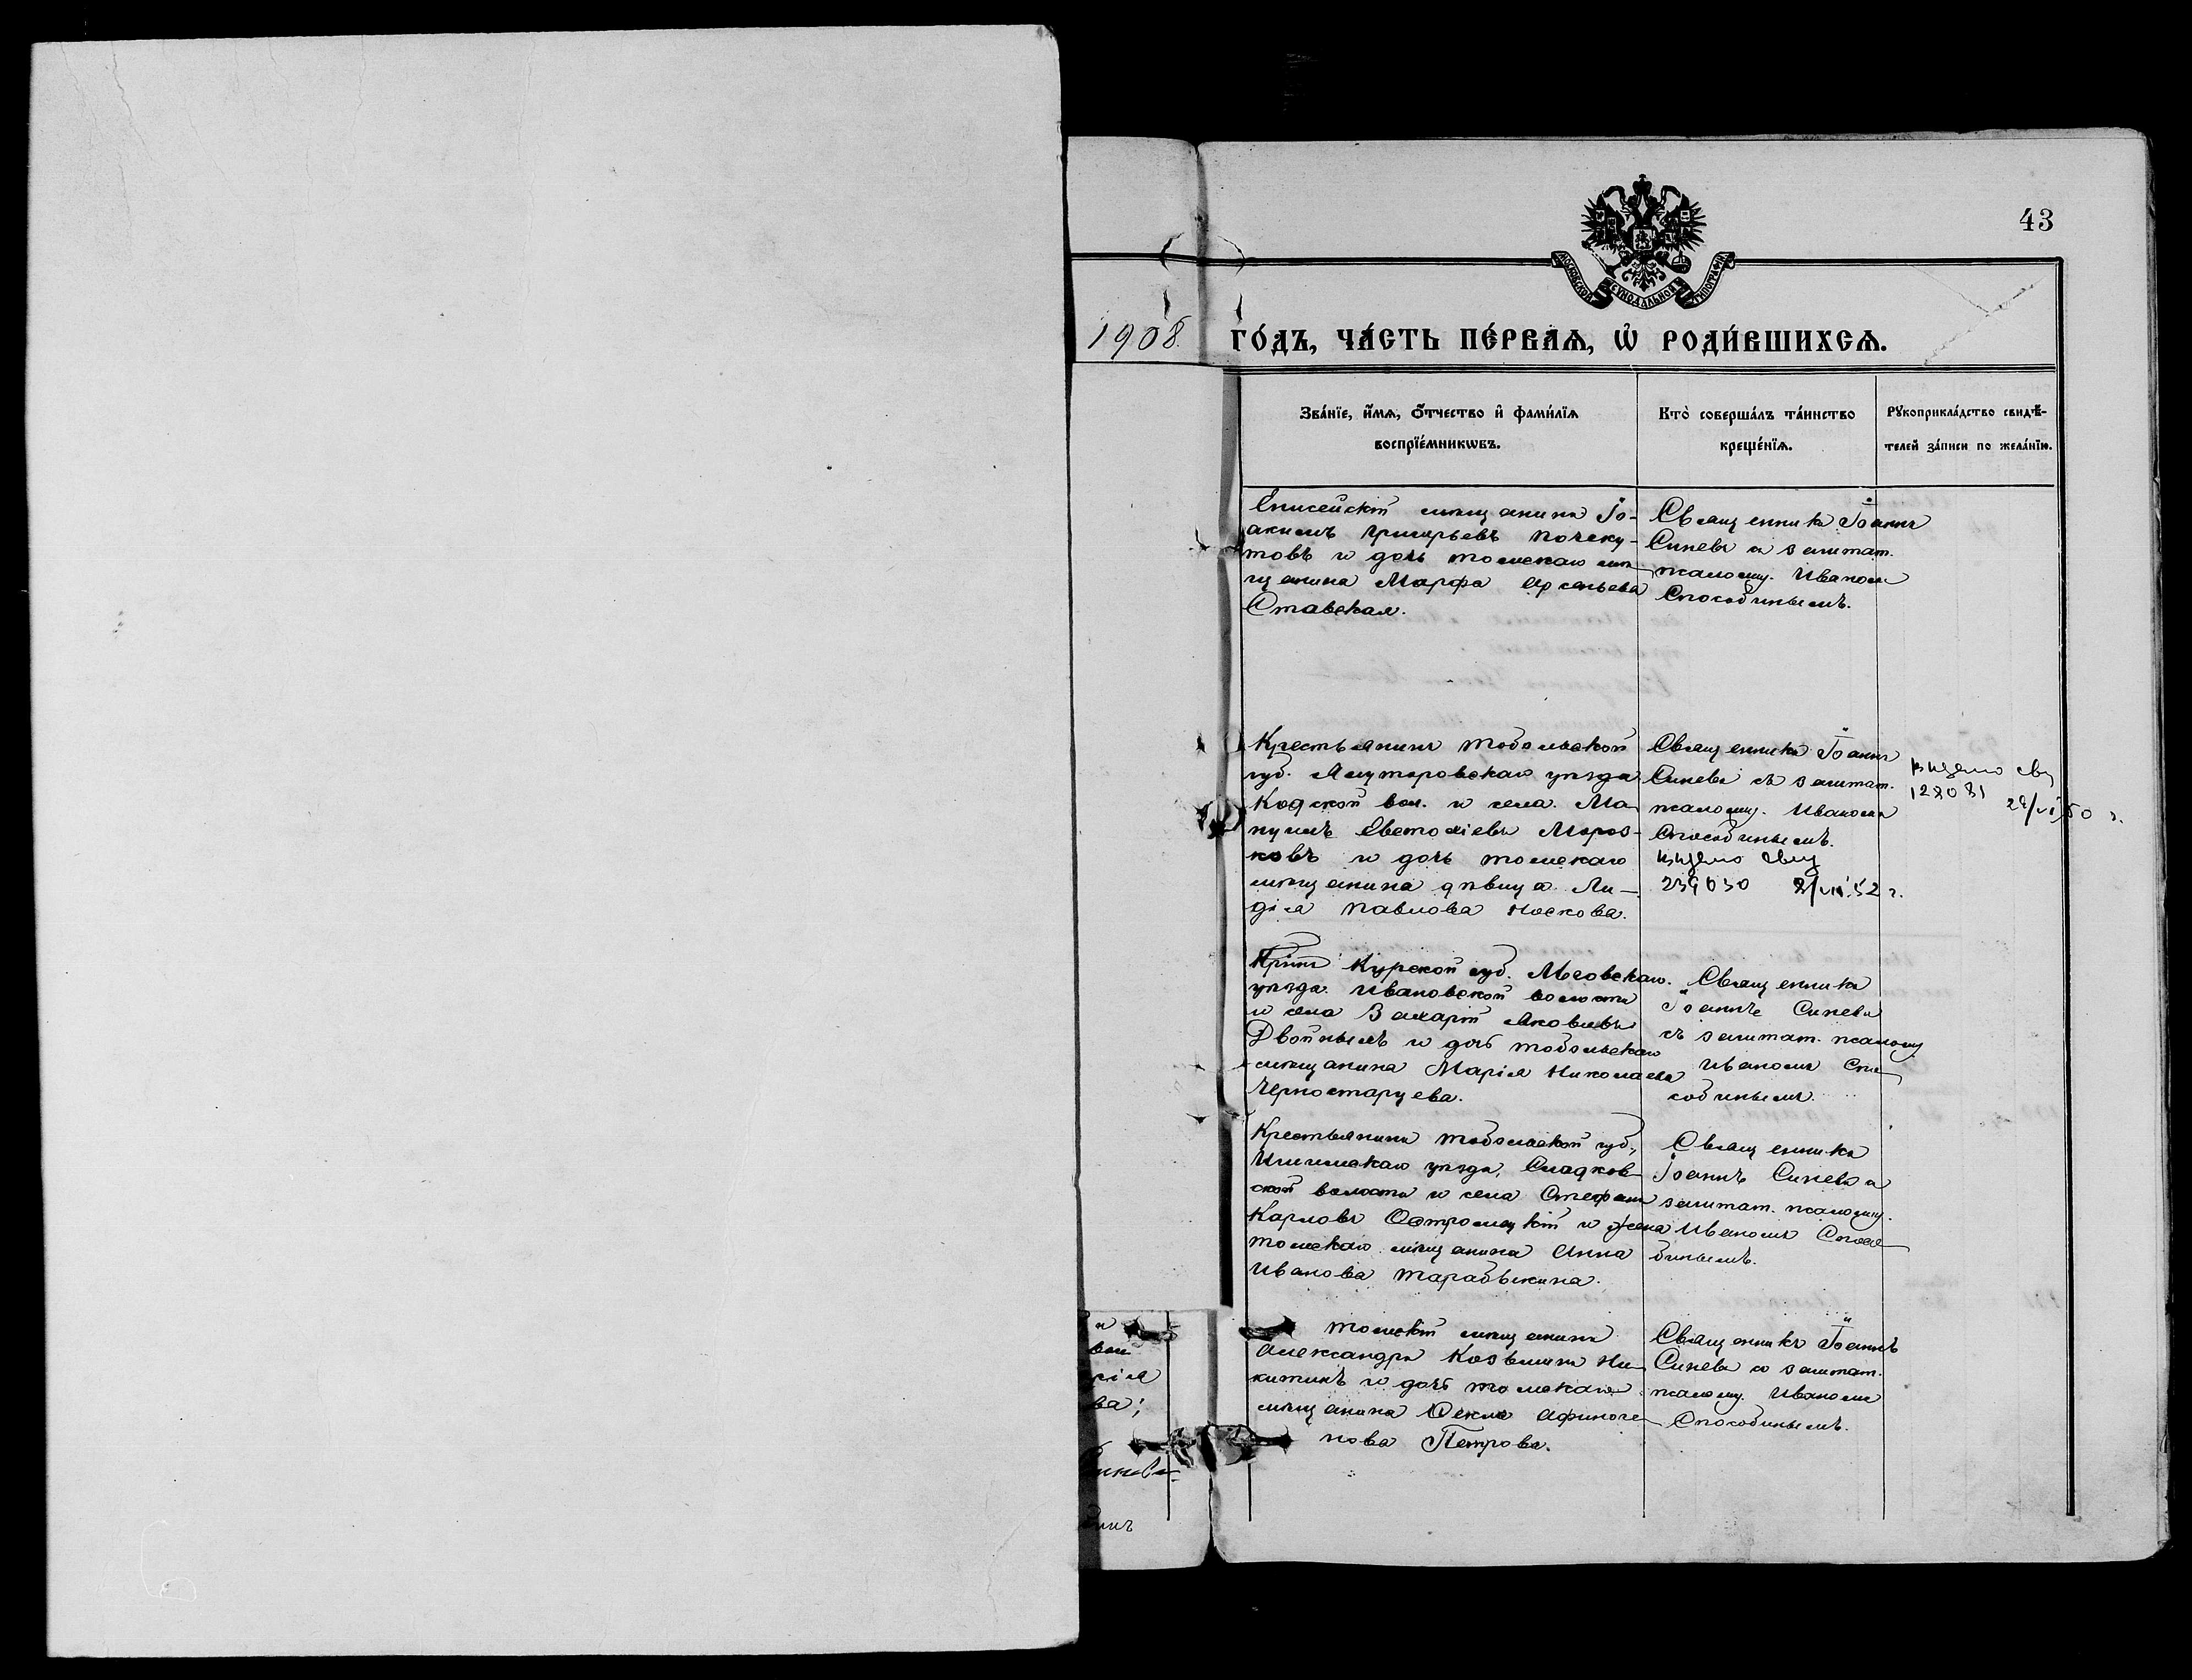 43
МОСКОВСКОЙ СѴНОДАЛЬНОЙ ТИПОГРАФІИ
1908. ГО́ДЪ, ЧА́СТЬ ПЕ́РВАѦ, Ѡ҆ РОДИ́ВШИХСѦ.
Зва́нїе, и҆́мѧ, ѻ҆́тчество и҆ фами́лїѧ
воспрїе́мникѡвъ.
Кто̀ соверша́лъ та́инство
креще́нїѧ.
Рꙋкоприкла́дство свидѣ́-
телей за́писи по жела́нїю.
Енисейскій мѣщанинъ Іо-
акимъ Григорьевъ Почеку-
товъ и дочь томскаго мѣ-
щанина Марфа Арсеньева
Ставская.
Священникъ Іоаннъ
Синевъ и заштат.
псаломщ. Иваномъ
Способинымъ.
Крестьянинъ Тобольской
губ. Ялуторовскаго уѣзда
Кодской вол. и села Ма-
Евстохіевъ Мороз-
ковъ и дочь томскаго
мѣщанина дѣвица Ли-
дія Павлова Носкова.
Священникъ Іоаннъ
Синевъ съ заштат.
псаломщ. Иваномъ
Способинымъ.
выдано свид
239030 2/VII.52 г.
выдано свид
128081
28/VI 50 г.
Курской губ. Льговскаго
уѣзда Ивановской волости
и села Захарій Яковлевъ
Двойнымъ и дочь тобольскаго
мѣщанина Марія Николаева
Черностарцева.
Священникъ
Іоаннъ Синевъ
съ заштат. псаломщ
Иваномъ Спо-
собинымъ.
Крестьянинъ Тобольской губ.,
Ишимскаго уѣзда, Сладков-
ской волости и села Стефанъ
Карловъ Остромецкій и жена
томскаго мѣщанина Анна
Иванова Тарабыкина.
Священникъ
Іоаннъ Синевъ и
заштат. псаломщ.
Иваномъ Спосо-
бинымъ.
Томскій мѣщанинъ
Александръ Козьминъ Ни-
китинъ и дочь томскаго
мѣщанина Ѳекла Афиноге-
нова Петрова.
Священникъ Іоаннъ
Синевъ и заштат.
псаломщ. Иваномъ
Способинымъ.
ва;